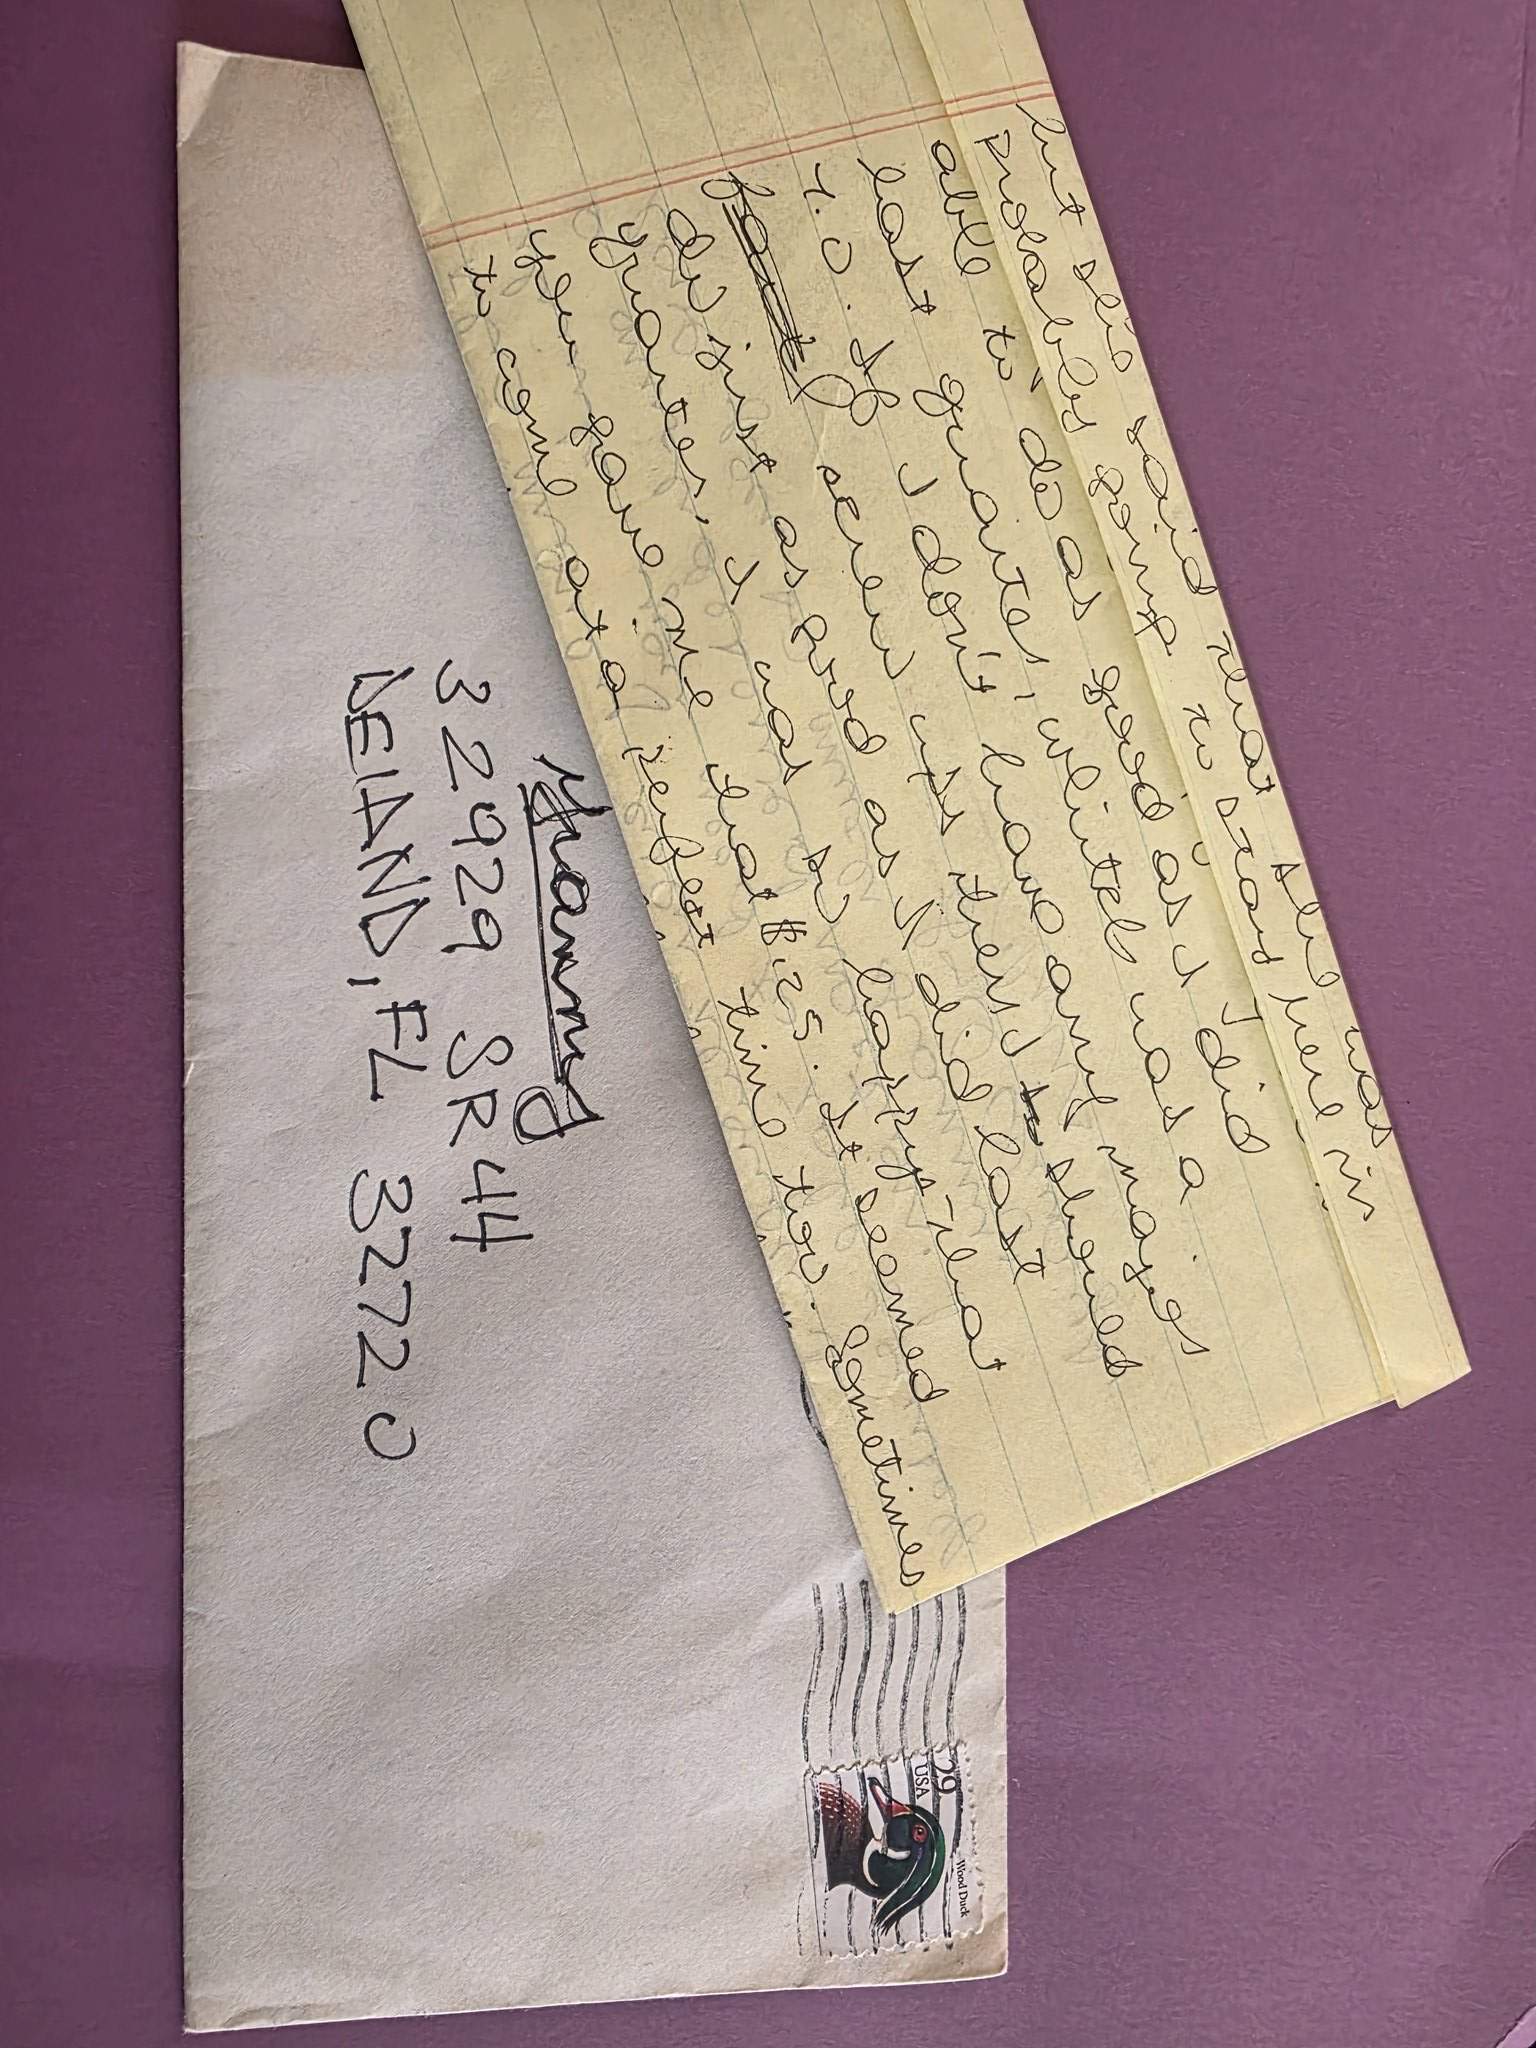 but she said that she was
probably going to stay here in
able to do as good as I did
last quarter, which was a
4.0. If I don't have any major
screw ups then I should
do just as good as I did last
quarter. I was so happy that
you gave me that $25. It seemed
to come at a perfect time too. Sometimes
Granny
32929 SR 44
DELAND, FL 32720
29
USA
Wood Duck